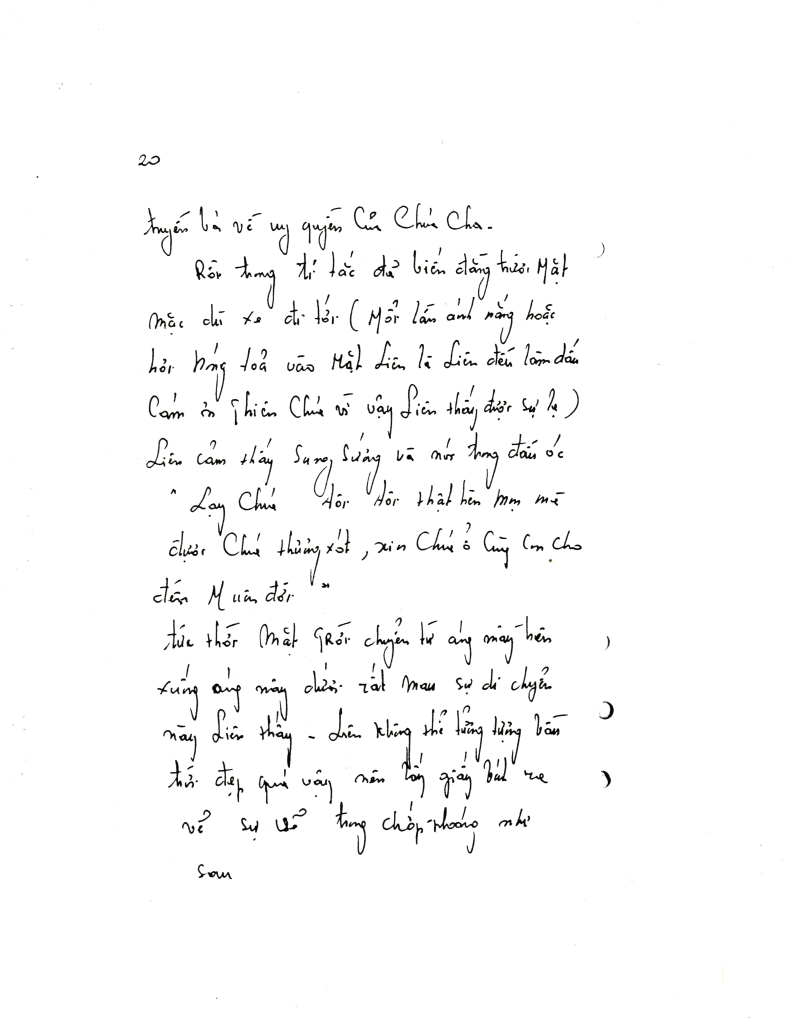 20
truyền bá về uy quyền Của Chúa Cha.
Rồi trong tí tắc đã biến đằng trước Mặt
Mặc dù xe đi tới ( Mỗi lần ánh nắng hoặc
hơi Nóng toả vào Mặt Liên là Liên đều làm dấu
Cám ơn Thiên Chúa vì vậy Liên thấy được sự lạ )
Liên cảm thấy Sung Sướng và nói trong đầu óc
" Lạy Chúa tôi tôi thật hèn Mọn mà
được Chúa thương xót, xin Chúa ở Cùng Con cho
đến Muôn đời "
tức thời Mặt Trời chuyển từ áng mây trên
xuống áng mây dưới rất Mau sự di chuyển
này Liên thấy - Liên không thể tưởng tượng bầu
trời đẹp quá vậy nên lấy giấy bút ra
vẽ sự trong chớp nhoáng như
sau